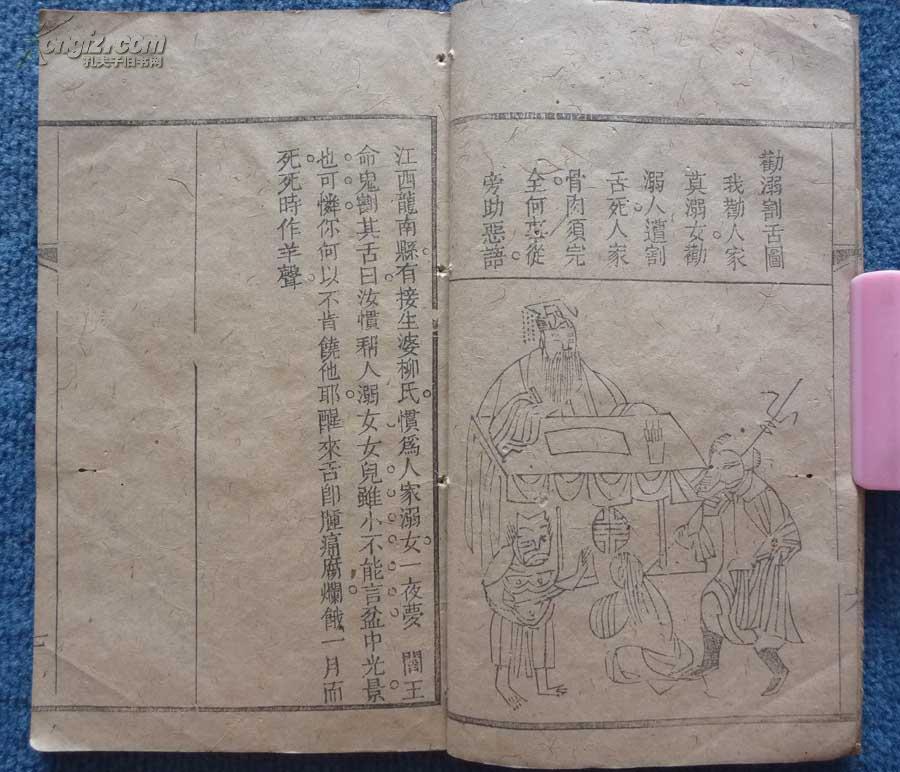 勸溺割舌圖
我勸人家
莫溺女勸
溺人遭割
舌死人家
骨肉須完
全何苦從
旁助惡語
江西龍南縣有接生婆柳氏慣爲人家溺女一夜夢　閻王
命鬼割其舌曰汝慣稱人溺女女兒雖小不能言盆中光景
也可憐你何以不肯饒他耶醒來舌卽腫痛腐爛餓一月而
死死時作羊聲
kongfz.com
孔夫子旧书网